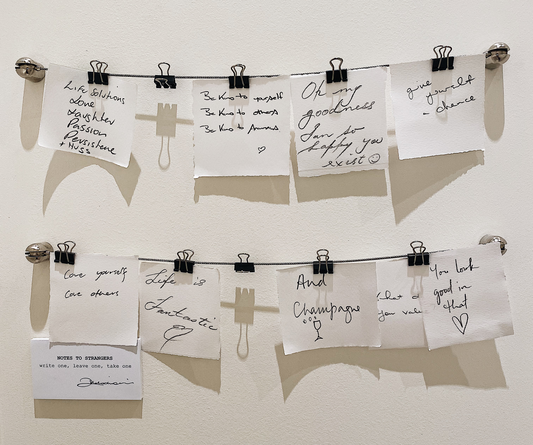 Life Solutions
Love
Laughter
Passion
Persistence
+ Hugs
Be Kind to yourself
Be Kind to others
Be Kind to Animals
Oh my
goodness
I am so
happy you
exist
give yourself
a chance
Love yourself
Love others
Life is
Fantastic
And
Champagne
What
you value
You look
good in
that
NOTES TO STRANGERS
write one, leave one, take one